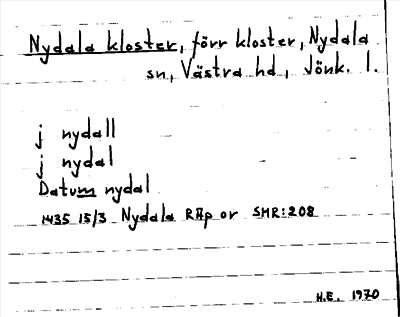 Nydala kloster, förr kloster, Nydala
sn, Västra hd, Jönk. l.
j nydall
j nydal
Datum nydal
1435 15/3 Nydala RAp or SMR:208
H.E. 1970